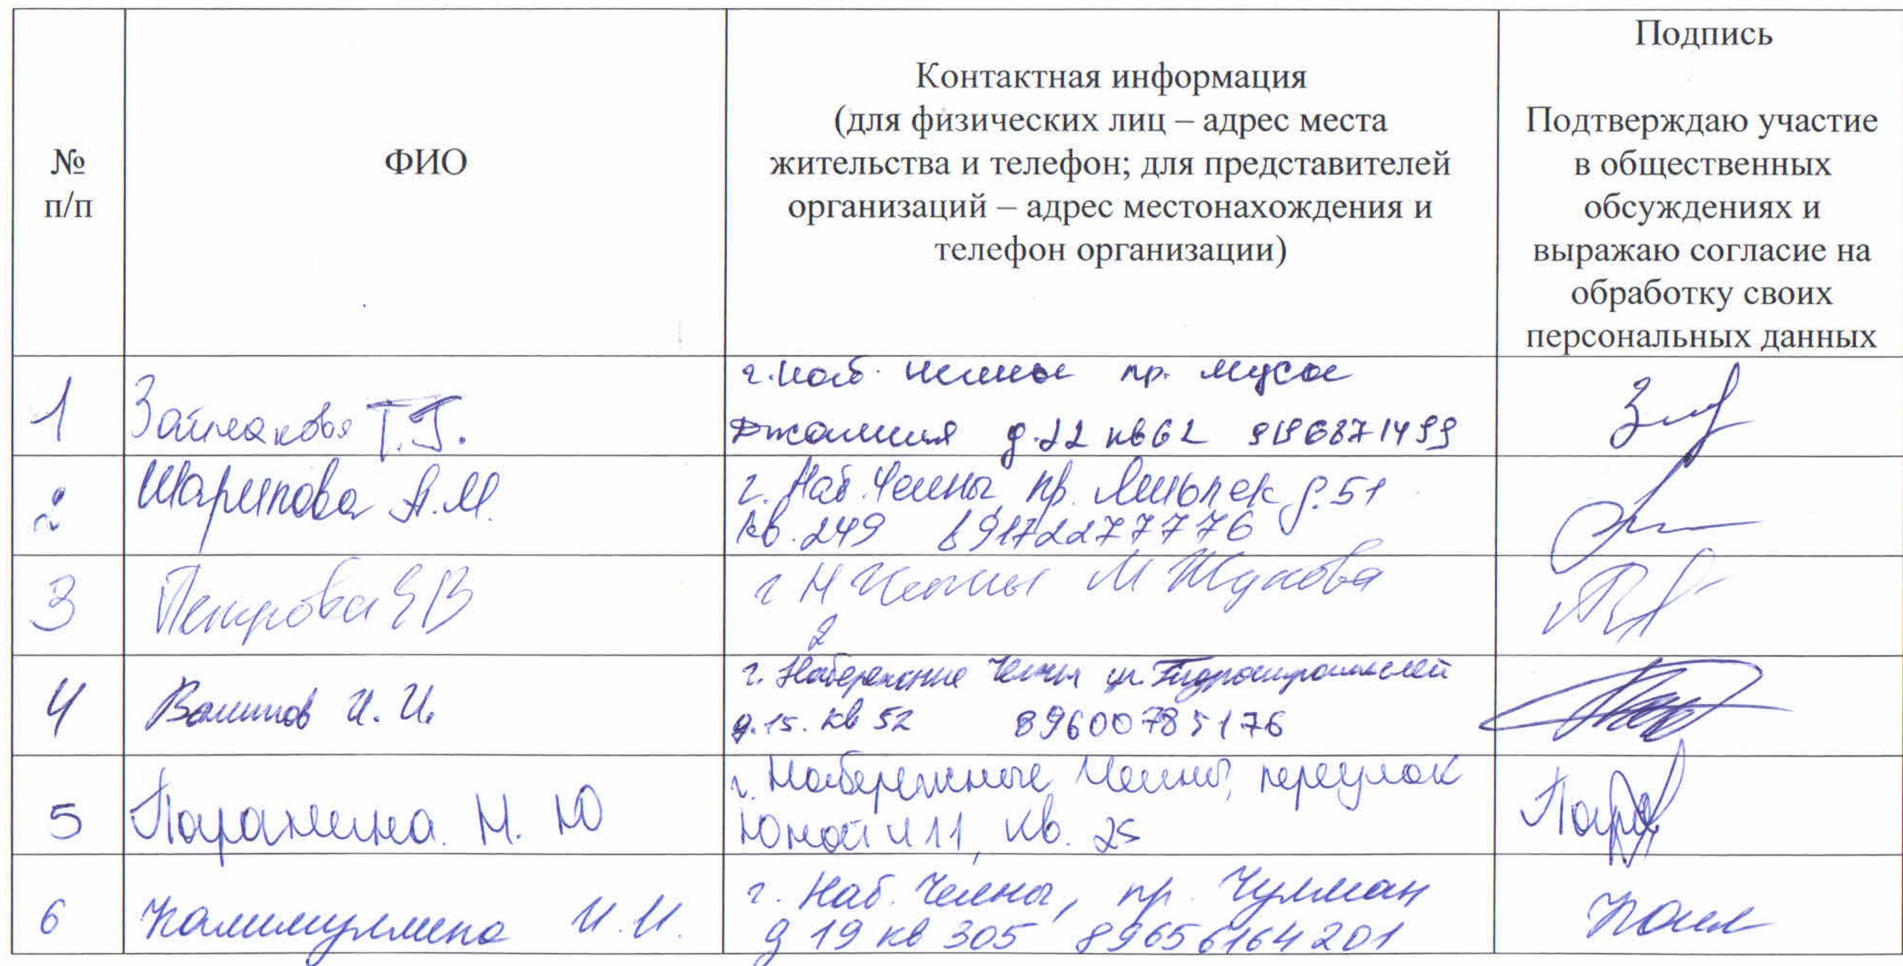 №
п/п
ФИО
Контактная информация
(для физических лиц – адрес места
жительства и телефон; для представителей
организаций – адрес местонахождения и
телефон организации)
Подпись
Подтверждаю участие
в общественных
обсуждениях и
выражаю согласие на
обработку своих
персональных данных
1
Т.Г.
г. Наб. Челны пр. Мусы
Джалиля д.22 кв 62
2
Шарипова А.М.
г. Наб. Челны, пр. д.51
кв. 249 89172277776
3
Петрова Е В
г Н Челны М Жукова
2
4
Валитов И. И.
г. Набережные Челны ул. Гидростроителей
д.15. кв 52 89600785176
5
Паранина. Н. Ю
г. Набережные Челны, переулок
11, кв. 25
6
Калимуллина И.И.
г. Наб. Челны, пр. Чулман
д 19 кв 305 89656164201